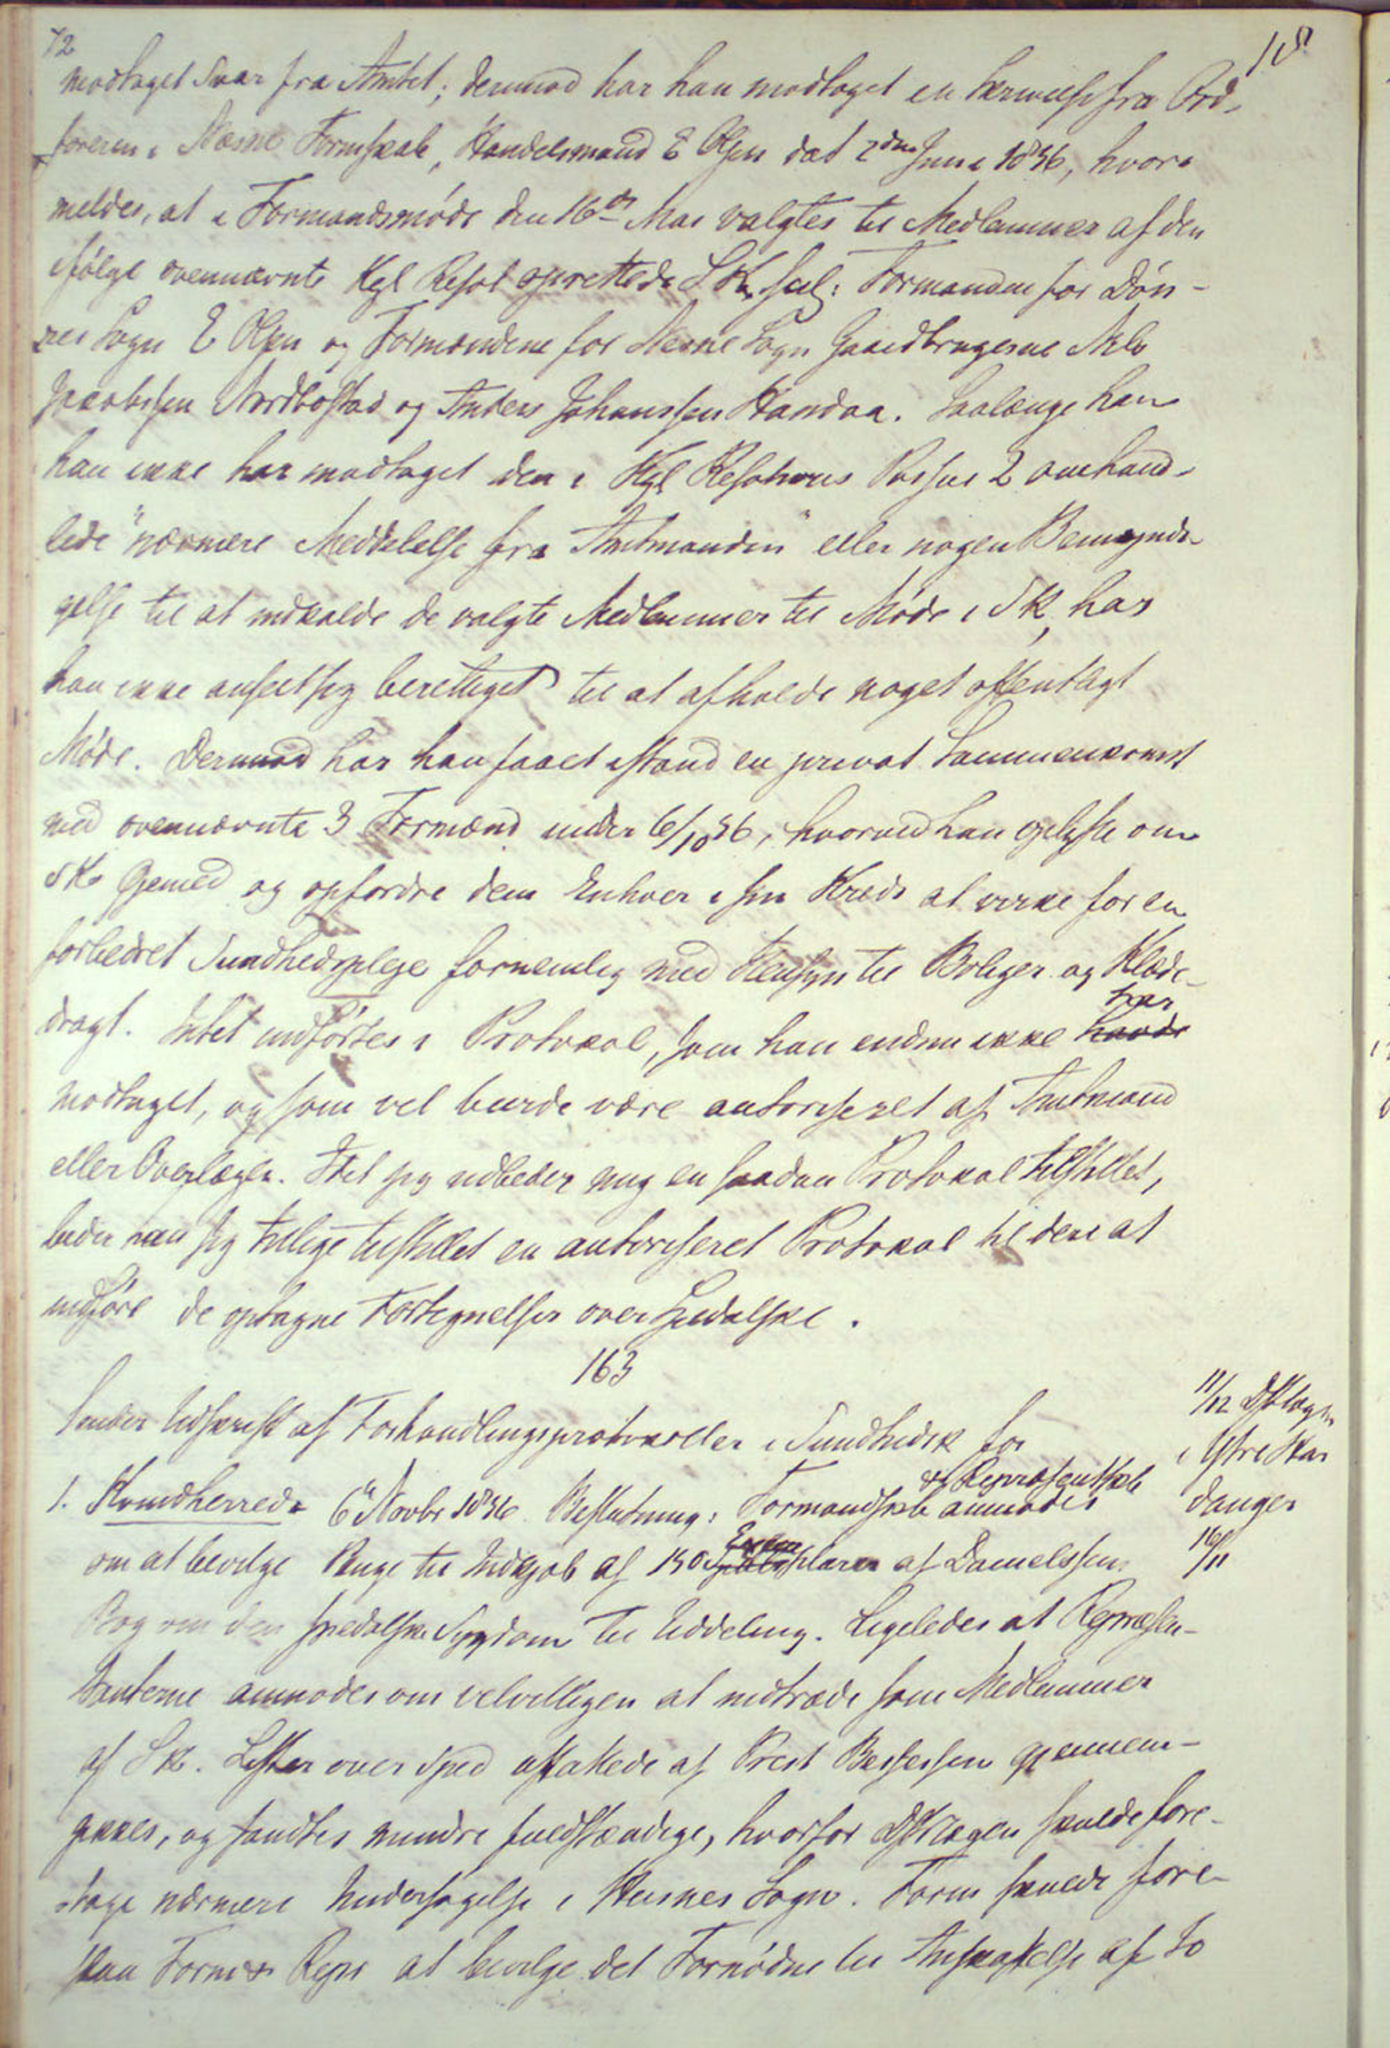 72
modtaget Svar fra Amtet; derimod har han modtaget en Skrivelse fra Ord-
føreren i Næsne Formskab, Handelsmand E Olsen dat 2den Juni 1856, hvori
meldes, at i Formandsmøde den 16de Mai valgtes til Medlemmer af den
ifølge ovennævnte Kgl Resol oprettede S K, følg: Formanden for Døn-
nes Sogn E Olsen og Formændene for Næsne Sogn Gaardbrugerne Nils
Jacobsen Nordbostad og Anders Johanssen Handaa. Saalænge han
han ikke har modtaget den i Kgl Resolutions Passus 2 omhand-
lede "nærmere Meddelelse fra Amtmanden" eller nogen Bemyndi-
gelse til at indkalde de valgte Medlemmer til Møde i S K, har
han ikke anseet sig berettiget til at afholde noget offentligt
Møde. Derimod har han faaet istand en privat Sammenkomst
med ovennævnte 3 Formænd under 6/10 56, hvorved han oplyste om
S K Øiemed og opfordre dem Enhver i sin Kreds at virke for en
forbedret Sundhedspleje fornemlig med Hensyn til Boliger og Klæde-
dragt. Intet indførtes i Protokol, som han endnu ikke havde har
modtaget, og som vel burde være autoriseret af Amtmand
eller Overlægen. Idet jeg udbeder mig en saadan Protokol tilstillet,
beder han sig tillige tilstillet en autoriseret Protokol til deri at
indføre de optagne Fortegnelser over Spedalske.
163
Sender Udskrift af Forhandlingsprotokoller i Sundhedsk for
11/12 DstLægen
i Ytre Har
danger
16/11
1. Kvindherred 6te Novbr 1856. Beslutning: Formandskab & Repræsentskab anmodes
om at bevilge Penge til Indkjøb af 150 Exemplarer af Danielssens
Bog om den spedalske Sygdom til Uddeling. Ligeledes at Repræsen-
tanterne anmodes om velvilligen at indtræde som Medlemmer
af S K. Lister over Sped affattede af Præst gjennem-
gikkes, og fandtes mindre fuldstændige, hvorfor DstLægen skulde fore-
tage nærmere Undersøgelse i Husnes Sogn. Form skulde fore-
slaa Form & Repr at bevilge det Fornødne til Anskaffelse af to